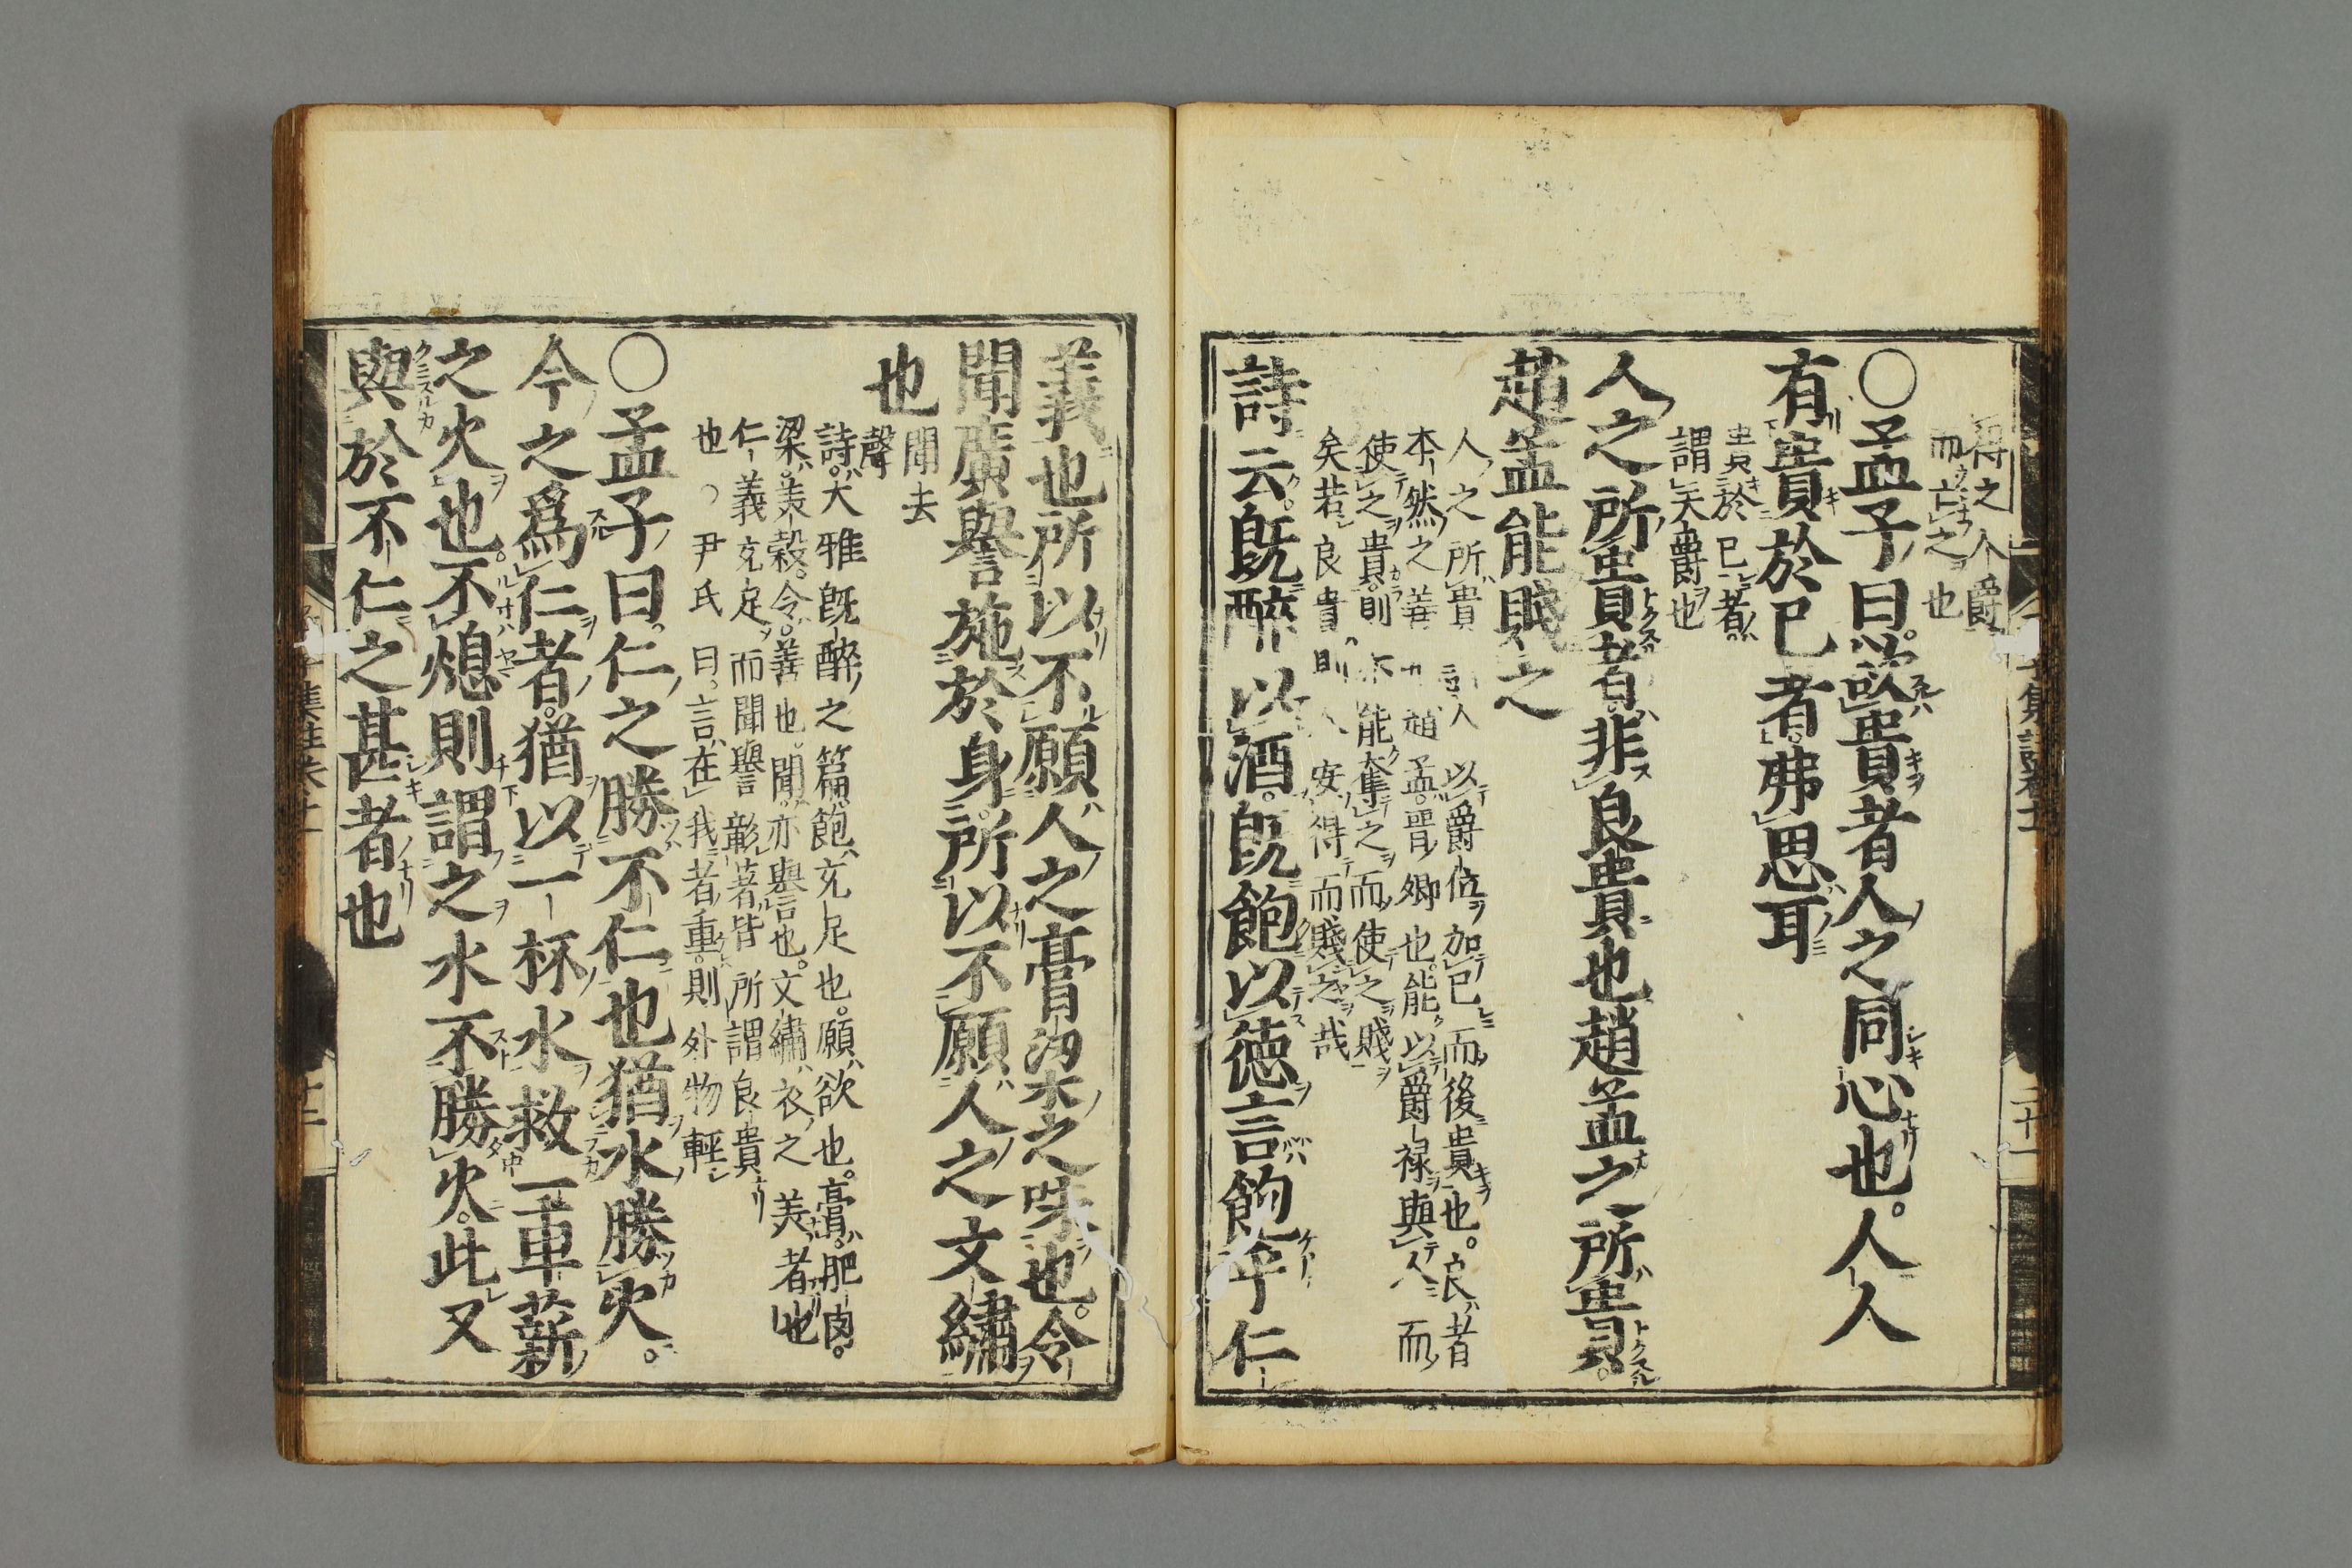 得之人爵
而亡之也
○孟子曰。欲貴者人之同心也。人人
有貴於己者。弗思耳
貴於己者
謂天爵也
人之所貴者。非良貴也趙孟之所貴。
趙孟能賤之
人之所貴謂人以爵位加己而後貴也。良者
本然之善也趙孟。晋卿也。能以爵禄與人而
使之貴。則亦能奪之而使之賤
矣若良貴則人安得而賤之哉
詩云。既醉以酒。既飽以徳言飽乎仁
義也所以不願人之膏粱之味也。令
聞廣譽施於身。所以不願人之文繡
也
聞去
聲
詩。大雅既醉之篇飽充足也。願欲也。膏。肥肉。
粱。美穀。令。善也。聞亦譽也。文繡衣之美者也
仁義充足而聞譽彰著皆所謂良貴
也○尹氏曰。言在我者重。則外物輕
○孟子曰。仁之勝不仁也猶水勝火。
今之爲仁者。猶以一杯水救一車薪
之火也。不熄則謂之水不勝火。此又
與於不仁之甚者也